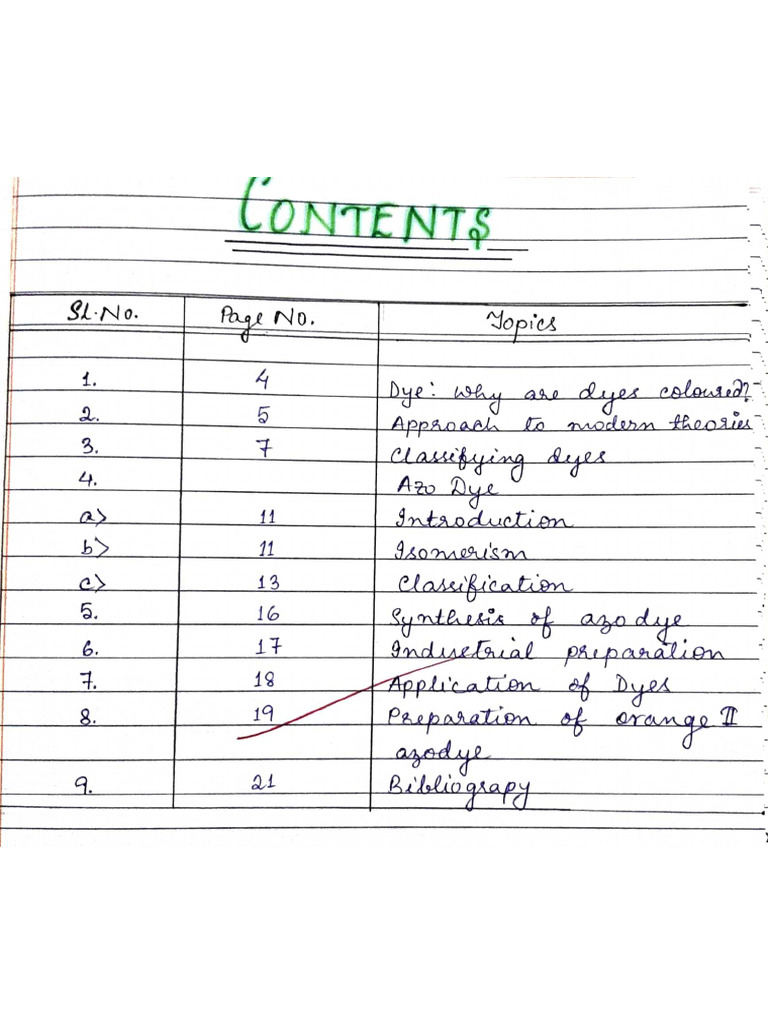 CONTENTS
Sl.No. Page No. Topics
1. 4 Dye: Why are dyes coloured?
2. 5 Approach to modern theories
3. 7 Classifying dyes
4. Azo Dye
a) 11 Introduction
b) 11 Isomerism
c) 13 Classification
5. 16 Synthesis of azo dye
6. 17 Industrial preparation
7. 18 Application of Dyes
8. 19 Preparation of orange II
azodye
9. 21 Bibliograpy